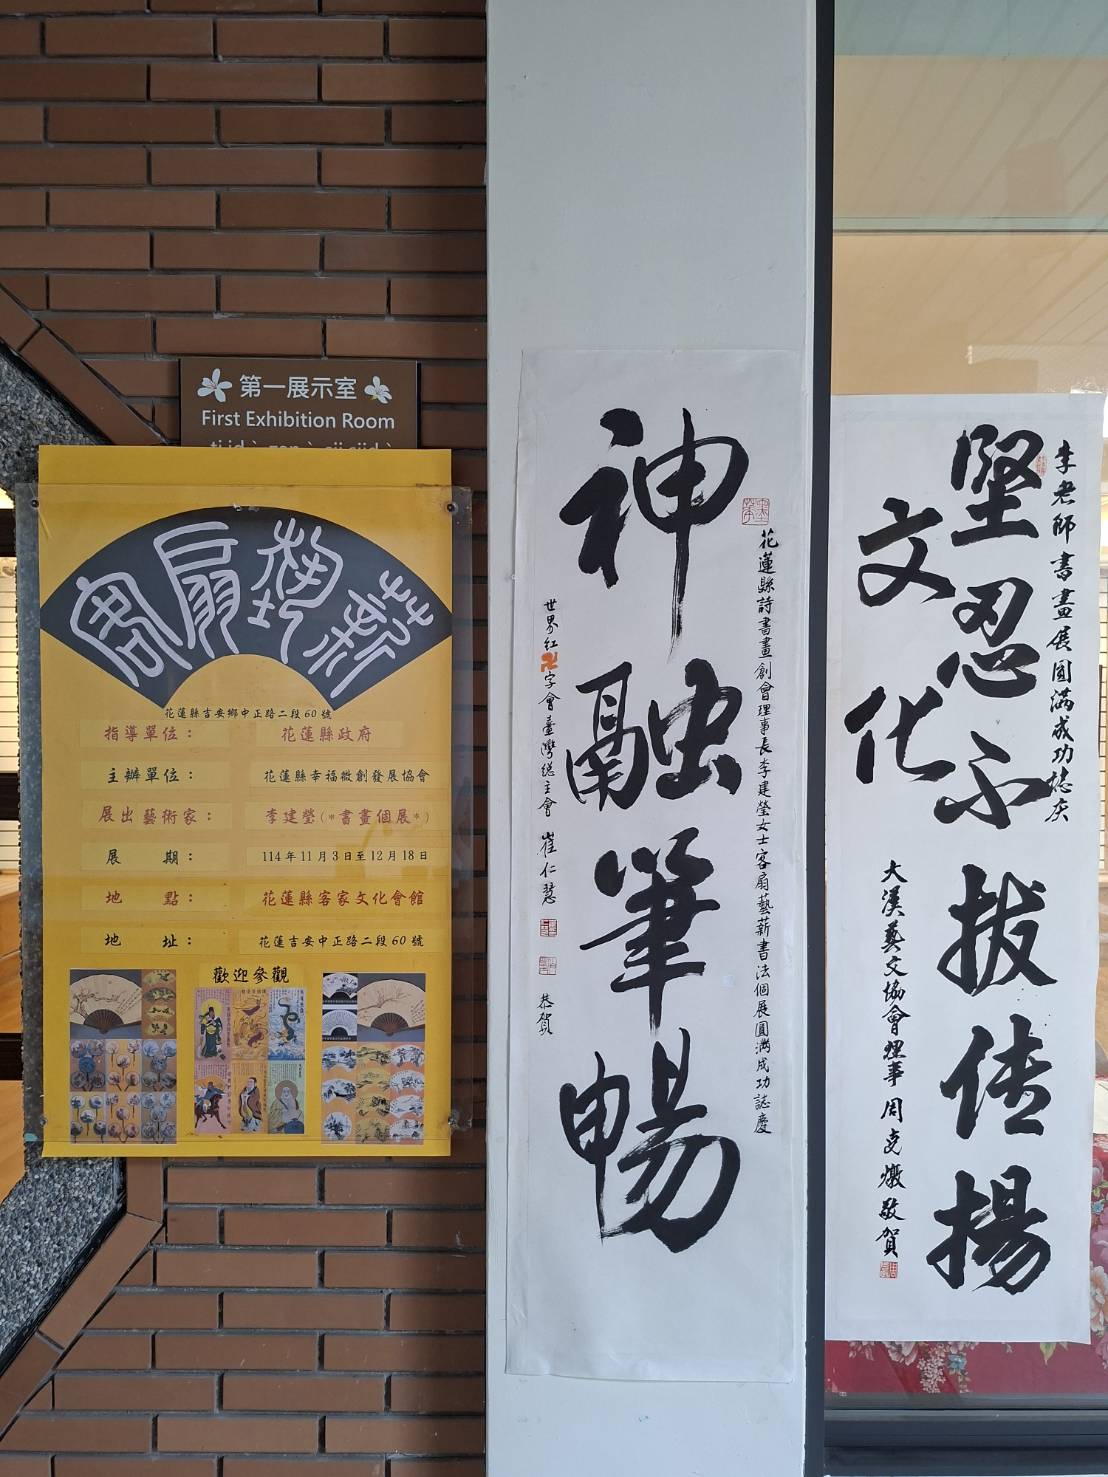 第一展示室
First Exhibition Room
客扇藝薪
花蓮縣吉安鄉中正路二段60號
指導單位： 花蓮縣政府
主辦單位： 花蓮縣幸福微創發展協會
展出藝術家： 李建瑩(*書畫個展*)
展 期： 114年11月3日至12月18日
地 點： 花蓮縣客家文化會館
地 址： 花蓮吉安中正路二段60號
歡迎參觀
花蓮縣詩書畫創會理事長李建瑩女士客扇藝薪書法個展圓滿成功誌慶
神融筆暢
世界紅卍字會臺灣總主會 崔仁慧 恭賀
李老師書畫展圓滿成功誌庆
堅忍不拔传揚
文化
大溪藝文協會理事 周克燉敬賀